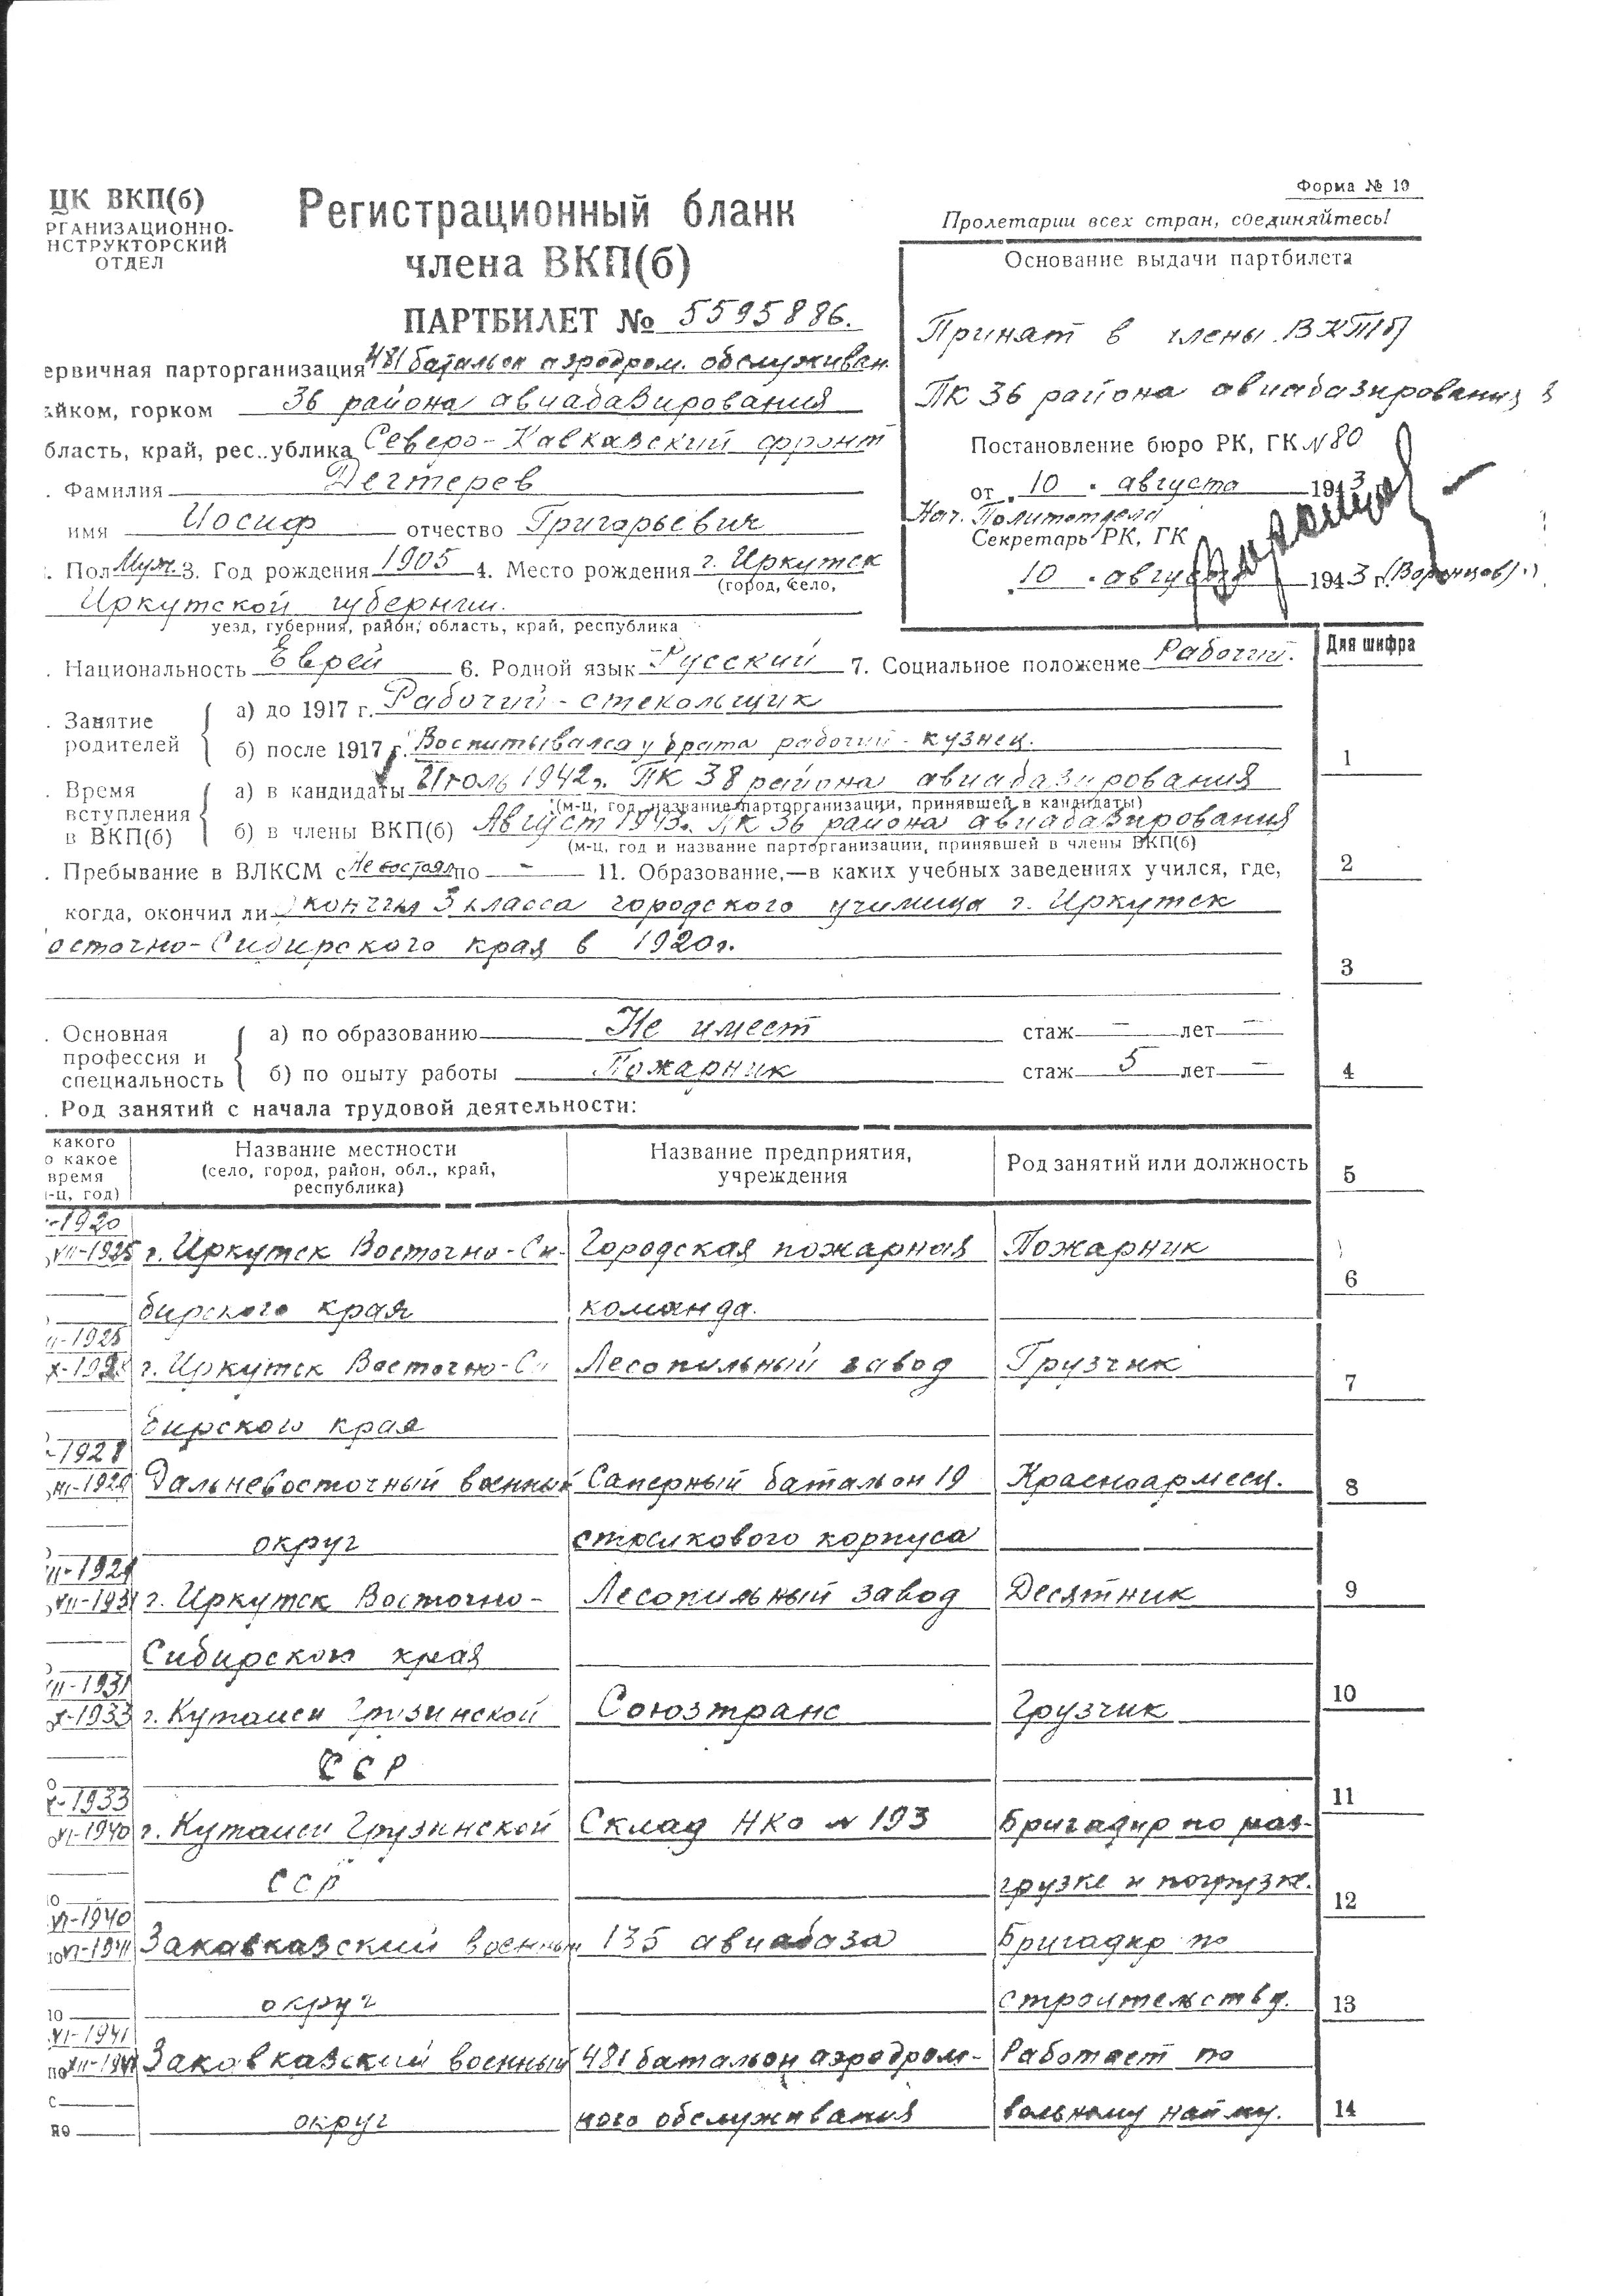 Форма № 10
ЦК ВКП(б)
РГАНИЗАЦИОННО-
НСТРУКТОРСКИЙ
ОТДЕЛ
Регистрационный бланк
члена ВКП(б)
ПАРТБИЛЕТ № 5595886.
Пролетарии всех стран, соединяйтесь!
Основание выдачи партбилета
Принят в члены ВКП(б)
ПК 36 района авиабазирования
Постановление бюро РК, ГК N 80
от 10 августа 1943
Нач. Политотдела
Секретарь РК, ГК
10 августа 1943 г. (Воронцов)
ервичная парторганизация 481 батальон аэродром. обслуживан.
йком, горком 36 района авиабазирования
бласть, край, рес..ублика Северо-Кавказский фронт
. Фамилия Дегтерев
имя Иосиф отчество Григорьевич
. Пол Муж. 3. Год рождения 1905 4. Место рождения г. Иркутск
(город, село,
Иркутской губернии.
уезд, губерния, район, область, край, республика
Для шифра
. Национальность Еврей 6. Родной язык Русский 7. Социальное положение Рабочий.
. Занятие родителей а) до 1917 г. Рабочий-стекольщик
б) после 1917 г. Воспитывался у брата рабочий-кузнец.
. Время вступления в ВКП(б) а) в кандидаты Июль 1942г. ПК 38 района авиабазирования
(м-ц, год, название парторганизации, принявшей в кандидаты)
б) в члены ВКП(б) Август 1943г. ПК 36 района авиабазирования
(м-ц, год и название парторганизации, принявшей в члены ВКП(б)
. Пребывание в ВЛКСМ с Не состоял по - 11. Образование,—в каких учебных заведениях учился, где,
когда, окончил ли Окончил 3 класса городского училища г. Иркутск
осточно-Сибирского края в 1920г.
. Основная профессия и специальность а) по образованию Не имеет стаж — лет —
б) по опыту работы Пожарник стаж 5 лет —
. Род занятий с начала трудовой деятельности:
какого
о какое
время
-ц, год)
Название местности
(село, город, район, обл., край,
республика)
Название предприятия,
учреждения
Род занятий или должность
-1920
VII-1925 г. Иркутск Восточно-Си- Городская пожарная Пожарник
бирского края команда.
-1925
X-192 г. Иркутск Восточно-Си Лесопильный завод Грузчик
бирского края
-1928
-1929 Дальневосточный военный Саперный батальон 19 Красноармеец.
округ стрелкового корпуса
-1929
VII-1931 г. Иркутск Восточно- Лесопильный завод Десятник
Сибирского края
-1931
X-1933 г. Кутаиси Грузинской Союзтранс Грузчик
ССР
-1933
VI-1940 г. Кутаиси Грузинской Склад НКО N 193 Бригадир по раз-
ССР грузке и погрузке.
VI-1940
VI-1941 Закавказский военный 135 авиабаза Бригадир по
округ строительству.
VI-1941
по Закавказский военный 481 батальон аэродром- Работает по
с
по округ ного обслуживания вольному найму.
1
2
3
4
5
6
7
8
9
10
11
12
13
14